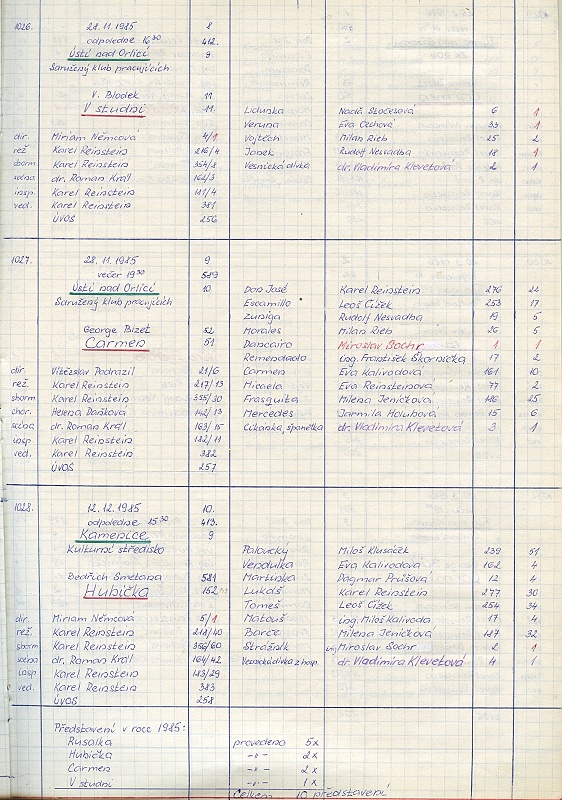 1026. 28.11.1985 8
odpoledne 16³⁰ 412.
Ústí nad Orlicí 9
Sdružený klub pracujících
V. Blodek 11
V studni 11. Lidunka Naďa Stočesová 6 1
Veruna Eva Čechová 33 1
dir. Miriam Němcová 4/1 Vojtěch Milan Rieb 25 2
rež Karel Reinstein 216/4 Janek Rudolf Nesvadba 18 1
sborm Karel Reinstein 354/8 Vesnická dívka dr. Vladimíra Klevetová 2 1
scéna dr. Roman Král 162/3
insp. Karel Reinstein 181/4
ved. Karel Reinstein 381
ÚVOS 256
1027. 28.11.1985 9
večer 19³⁰ 589
Ústí nad Orlicí 10 Don José Karel Reinstein 276 22
Sdružený klub pracujících Escamillo Leoš Čížek 253 17
Zuniga Rudolf Nesvadba 19 5
George Bizet 52 Morales Milan Rieb 26 5
Carmen 51 Dancairo Miroslav Sochr 1 1
Remendado ing. František Škornička 17 2
dir. Vítězslav Podrazil 21/6 Carmen Eva Kalivodová 161 10
rež. Karel Reinstein 217/13 Micaela Eva Reinsteinová 77 2
sborm Karel Reinstein 355/30 Frasquita Milena Jeníčková 186 25
chor. Helena Dašková 142/13 Mercedes Jarmila Holubová 15 6
scéna dr. Roman Král 163/15 Cikánka, španělka dr. Vladimíra Klevetová 3 1
insp Karel Reinstein 182/11
ved. Karel Reinstein 382
ÚVOS 257
1028. 12.12.1985 10.
odpoledne 15³⁰ 413.
Kamenice 9
Kulturní středisko Paloucký Miloš Klusáček 239 51
Vendulka Eva Kalivodová 162 4
Bedřich Smetana 581 Martinka Dagmar Průšová 12 4
Hubička 152 Lukáš Karel Reinstein 277 30
Tomeš Leoš Čížek 254 34
dir. Miriam Němcová 5/1 Matouš ing. Miloš Kalivoda 17 4
rež. Karel Reinstein 218/40 Barče Milena Jeníčková 187 32
sborm Karel Reinstein 356/60 Strážník Miroslav Sochr 2 1
scéna dr. Roman Král 164/42 Vesnická dívka z hosp. dr. Vladimíra Klevetová 4 1
insp Karel Reinstein 183/29
ved. Karel Reinstein 383
ÚVOS 258
Představení v roce 1985:
Rusalka provedena 5x
Hubička -"- 2x
Carmen -"- 2x
V studni -"- 1x
Celkem 10 představení